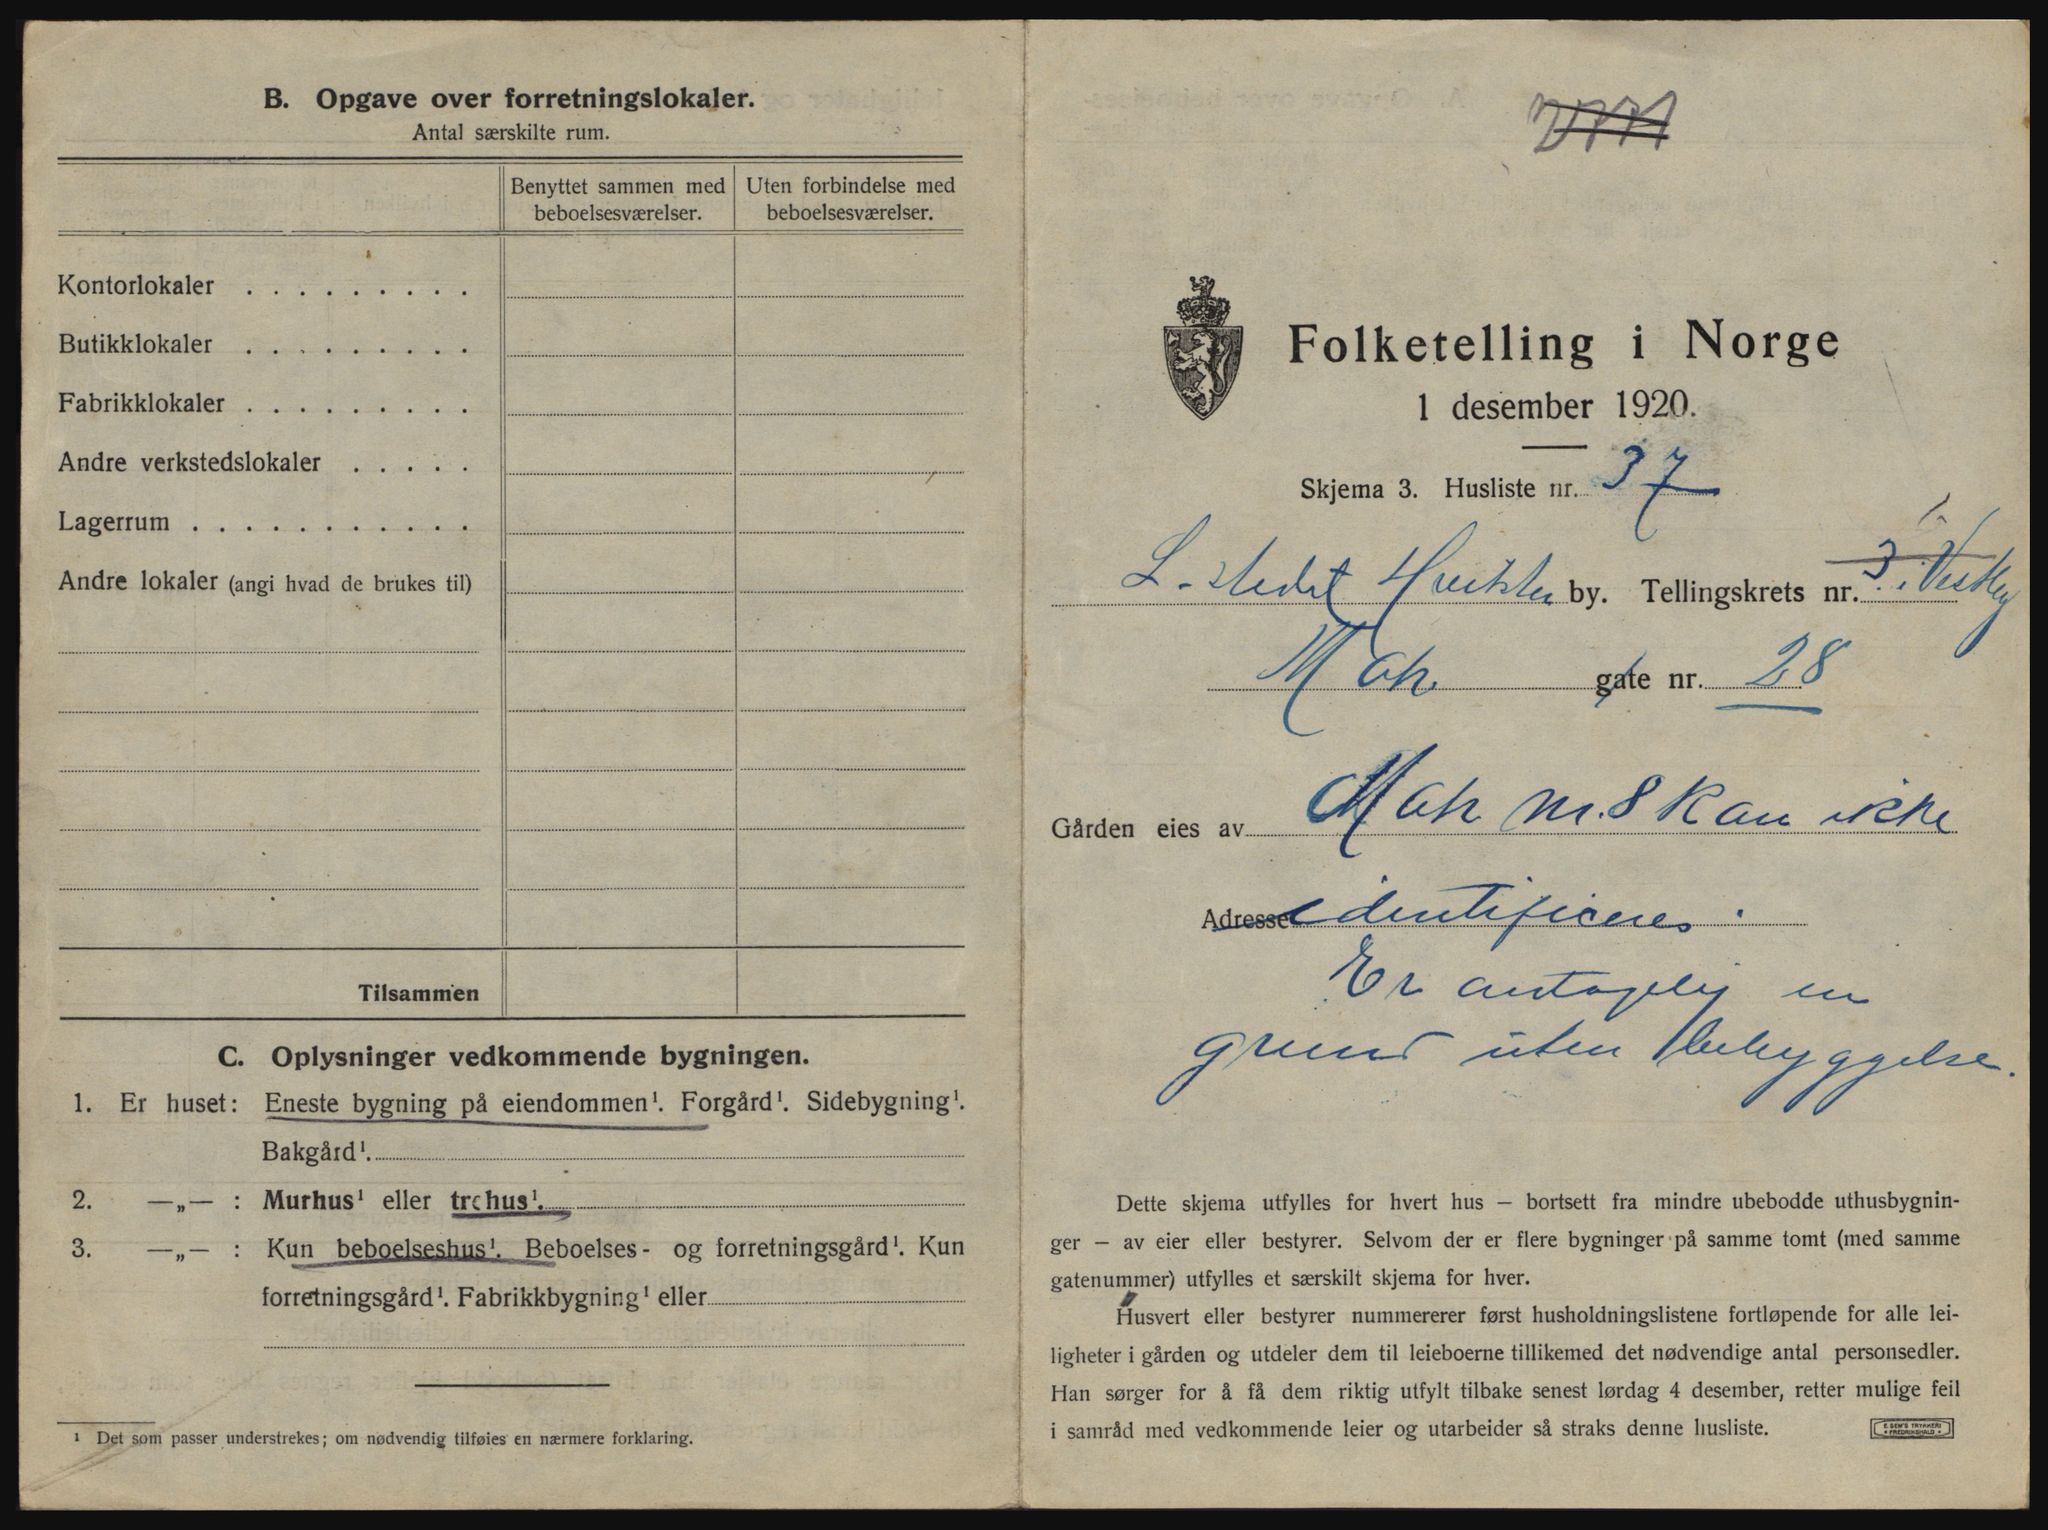 B. Opgave over forretningslokaler.
Antal særskilte rum.
Benyttet sammen med beboelsesværelser.
Uten forbindelse med beboelsesværelser.
Kontorlokaler . . . . . . . . .
Butikklokaler . . . . . . . . .
Fabrikklokaler . . . . . . . . .
Andre verkstedslokaler . . . . .
Lagerrum . . . . . . . . . . . .
Andre lokaler (angi hvad de brukes til)
Tilsammen
C. Oplysninger vedkommende bygningen.
1. Er huset: Eneste bygning på eiendommen¹. Forgård¹. Sidebygning¹.
Bakgård¹.
2. —„— : Murhus¹ eller trehus¹.
3. —„— : Kun beboelseshus¹. Beboelses- og forretningsgård¹. Kun
forretningsgård¹. Fabrikkbygning¹ eller
¹ Det som passer understrekes; om nødvendig tilføies en nærmere forklaring.
Folketelling i Norge
1 desember 1920.
Skjema 3. Husliste nr. 37
L-stedet Hvitsten by. Tellingskrets nr. 3 i Vestby
gate nr. 28
Gården eies av nr. 8 kan ikke
Adresse identificeres.
Er antagelig en
grund uten bebyggelse.
Dette skjema utfylles for hvert hus — bortsett fra mindre ubebodde uthusbygnin-
ger — av eier eller bestyrer. Selvom der er flere bygninger på samme tomt (med samme
gatenummer) utfylles et særskilt skjema for hver.
Husvert eller bestyrer nummererer først husholdningslistene fortløpende for alle lei-
ligheter i gården og utdeler dem til leieboerne tillikemed det nødvendige antal personsedler.
Han sørger for å få dem riktig utfylt tilbake senest lørdag 4 desember, retter mulige feil
i samråd med vedkommende leier og utarbeider så straks denne husliste.
E. SEM'S TRYKKERI
FREDRIKSHALD